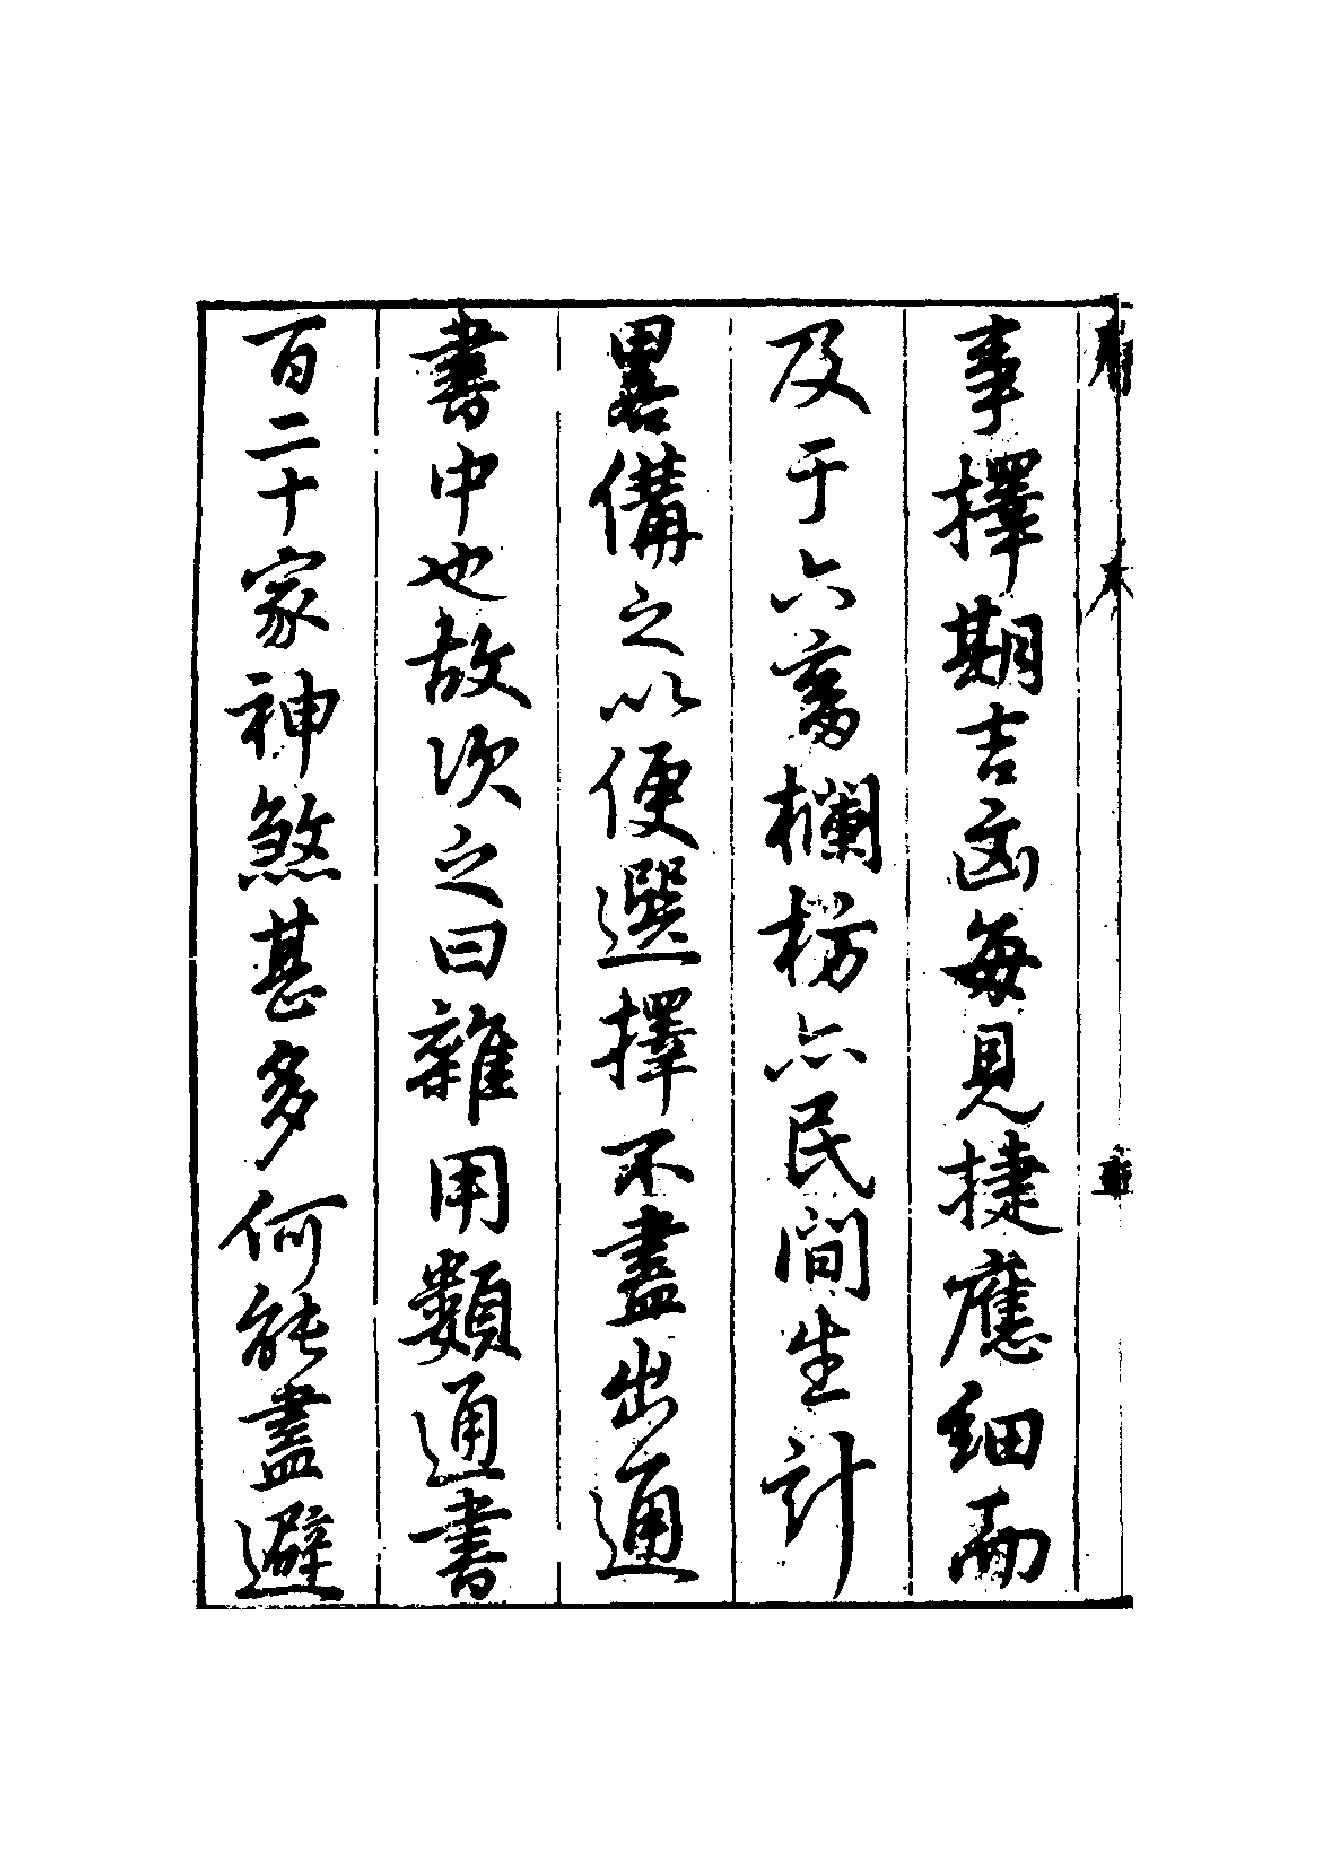 事擇期吉凶每見捷應細而
及于六畜欄枋亦民間生計
畧備之以便選擇不盡出通
書中也故次之曰雜用類通書
百二十家神煞甚多何能盡避